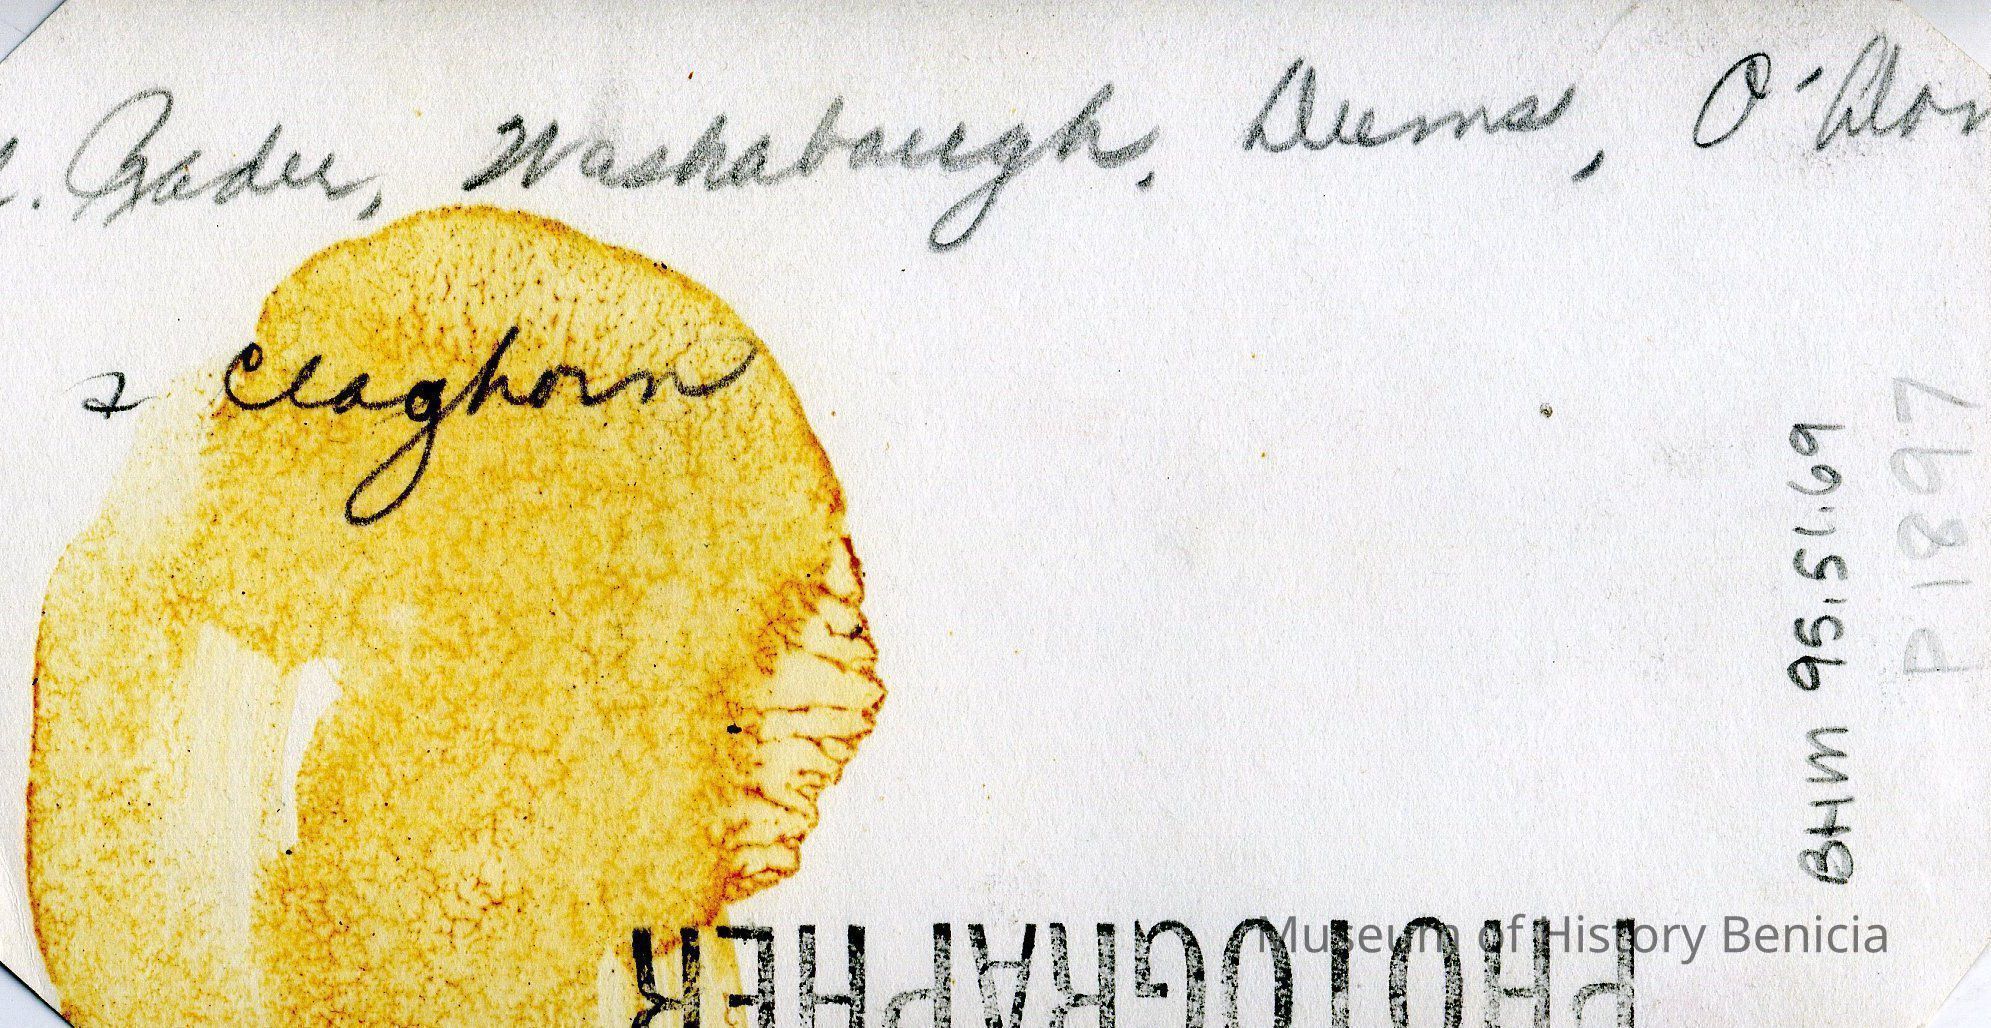 Gader, Washabaugh, Deems, O'Don
& Claghorn
BHM 95.51.69
P1897
PHOTOGRAPHER
Museum of History Benicia